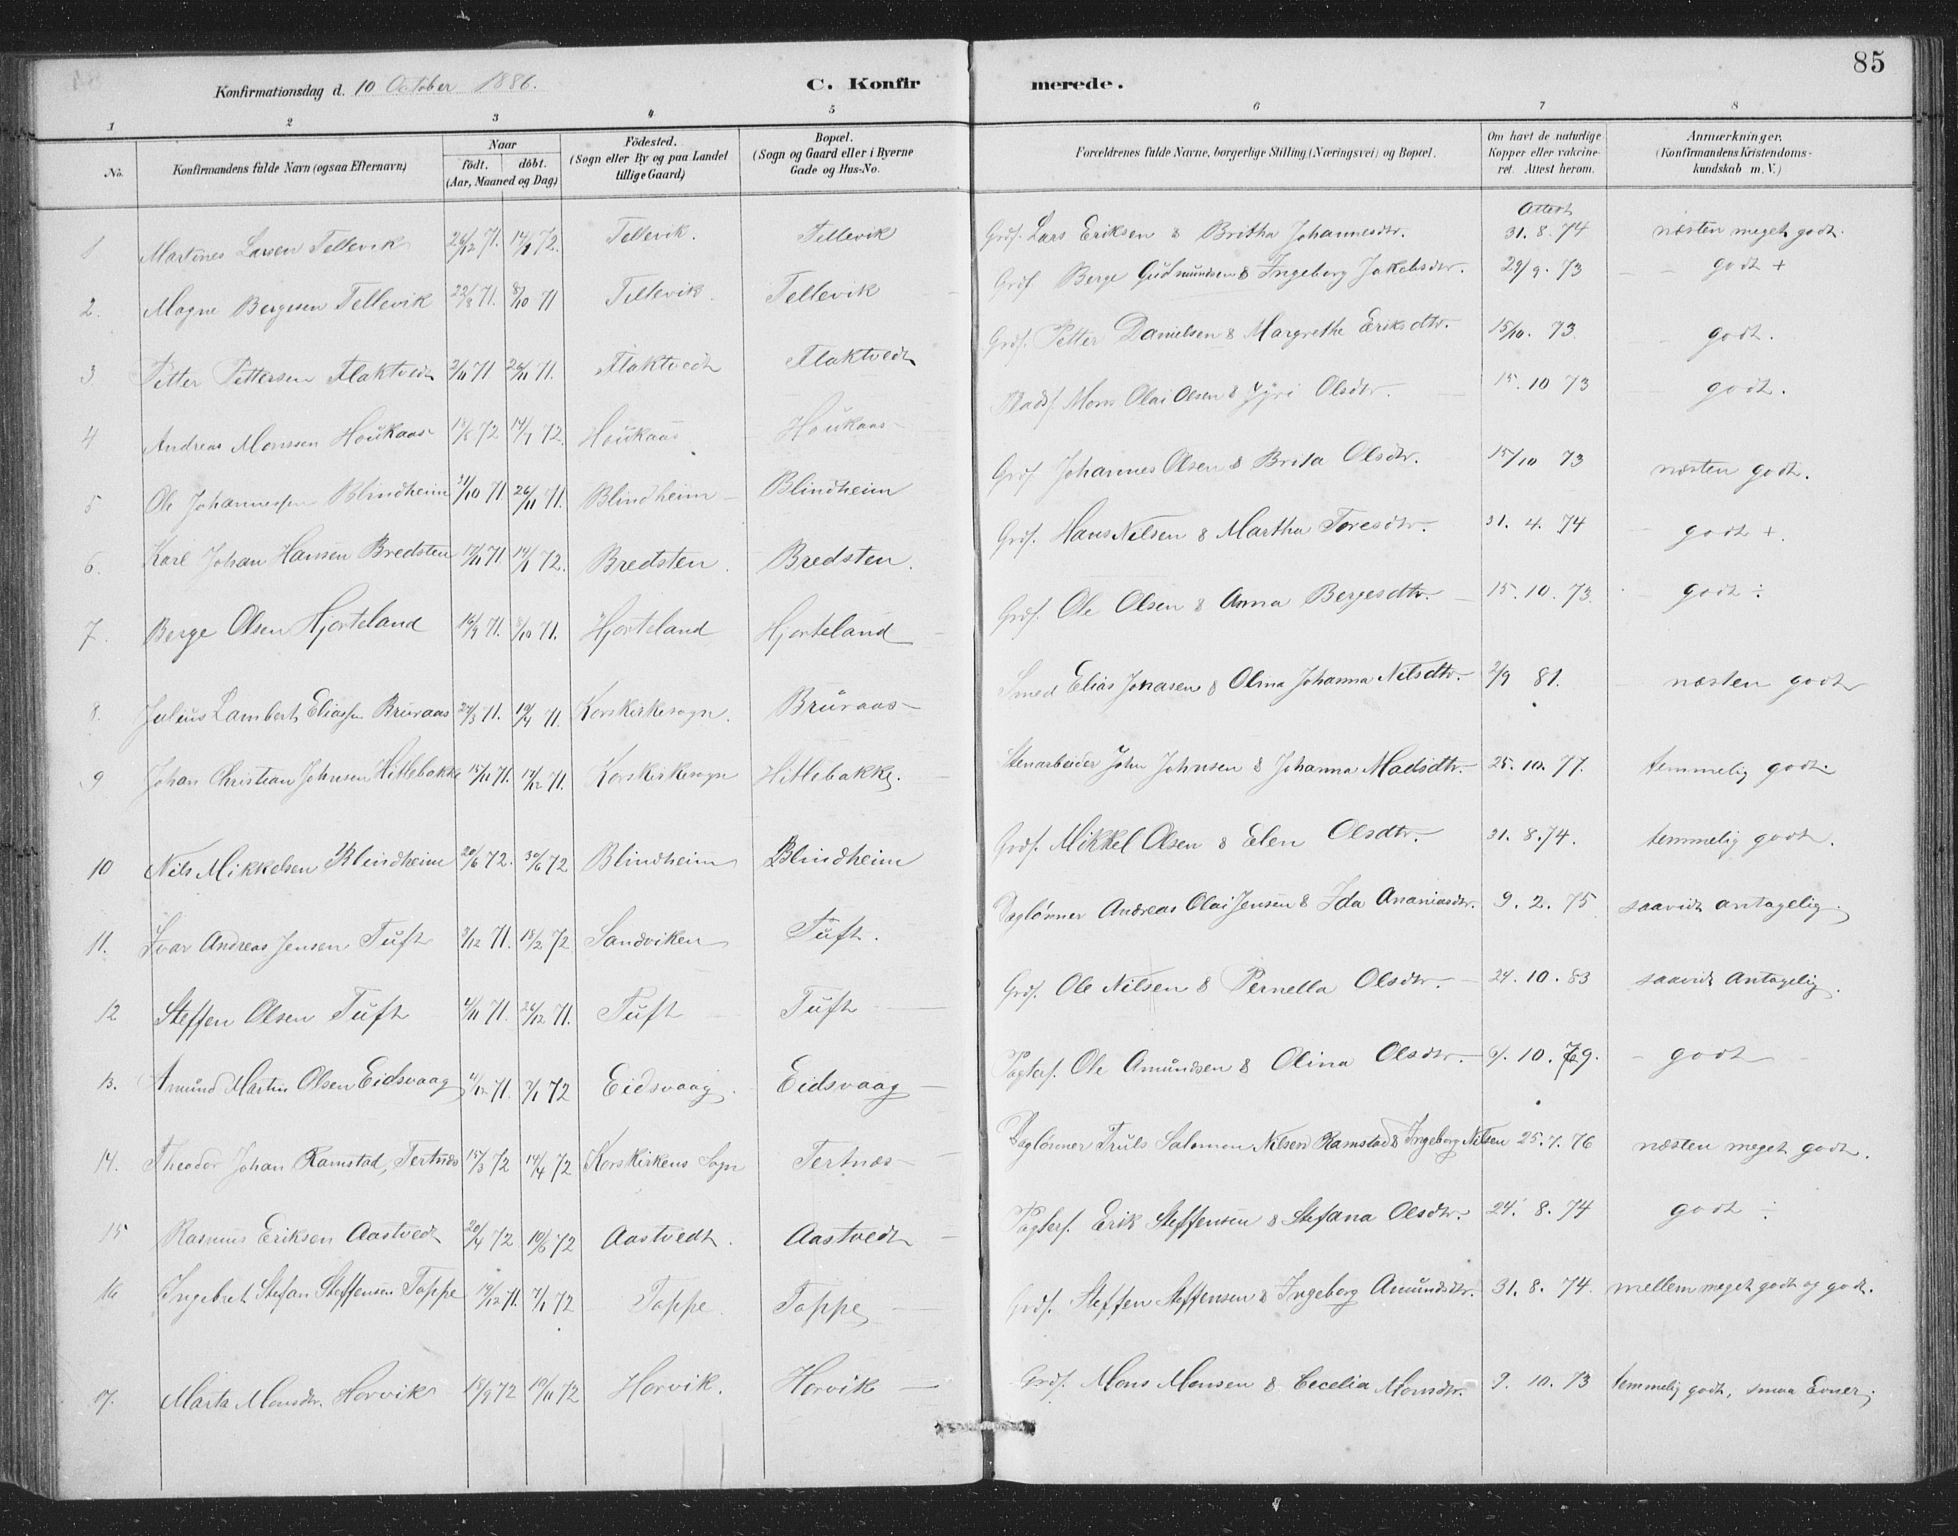 85
Konfirmationsdag d. 10 October 1886. C. Konfirmerede.
1 2 3 4 5 6 7 8
No. Konfirmandens fulde Navn (ogsaa Efternavn) Naar født. døbt. (Aar, Maaned og Dag) Födested. (Sogn eller By og paa Landet tillige Gaard) Bopæl. (Sogn og Gaard eller i Byerne Gade og Hus-No. Forældrenes fulde Navne, borgerlige Stilling (Næringsvei) og Bopæl. Om havt de naturlige Kopper eller vakcineret. Attest herom. Anmærkninger. (Konfirmandens Kristendomskundskab m. V.)
1 Martines Larsen Tellevik 26/12 71. 14/1 72. Tellevik. Tellevik Grdf. Lars Eriksen & Britha Johannesdtr. Attest 31. 8. 74 næsten meget godt.
2. Magne Bergesen Tellevik 22/8 71. 8/10 71 Tellevik. Tellevik Grdf. Berge Gudmundsen & Ingeborg Jakobsdtr. 29/9. 73 godt +
3 Petter Pettersen Flaktvedt 2/11 71 26/11 71. Flaktvedt Flaktvedt Grdf. Petter Danielsen & Margrethe Eriksdtr. 15/10. 73 godt.
4 Andreas Monssen Houkaas 72 14/7 72. Houkaas Houkaas Pladsf. Mons Olai Olsen & Olsdtr. 15. 10 73 godt.
5 Ole Johannessen Blindheim 31/10 71 26/11 71. Blindheim Blindheim Grdf. Johannes Olsen & Brita Olsdtr. 15/10 73 næsten godt.
6. Karl Johan Hansen Bredsten 17/11 71 14/1 72. Bredsten. Bredsten. Grdf. Hans Nilsen & Martha Toresdtr. 31. 4. 74 godt +.
7. Berge Olsen Hjorteland 16/9 71. 8/10 71. Hjorteland Hjorteland Grdf. Ole Olsen & Anna Bergesdtr. 15. 10. 73. godt ÷
8. Julius Lambert Eliassen Bruraas 27/3 71. 19/4 71. Korskirkesogn. Bruraas Smed Elias Jonasen & Olina Johanna Nilsdtr. 2/9 81. næsten godt
9 Johan Christian Johnsen Hitlebakke 15/11 71. 17/12 71. Korskirkesogn Hitlebakke. Stenarbeider John Johnsen & Johanna Madsdtr. 25. 10. 77. temmelig godt.
10 Nils Mikkelsen Blindheim 20/6 72. 30/6 72 Blindheim Blindheim Grdf. Mikkel Olsen & Elen Olsdtr. 31. 8. 74. temmelig godt.
11. Ivar Andreas Jensen Tuft 3/12 71. 18/2 72 Sandviken Tuft. Daglønner Andreas Olai Jensen & Ida Ananiasdtr. 9. 2. 75 saavidt antagelig.
12 Steffen Olsen Tuft 71. 26/12 71. Tuft Tuft Grdf. Ole Nilsen & Pernella Olsdtr. 24. 10. 83 saavidt Antagelig.
13. Amund Martin Olsen Eidsvaag 11/12 71. 7/1 72 Eidsvaag. Eidsvaag Pagterf. Ole Amundsen & Olina Olsdtr. 6/. 10. 79. godt
14. Theodor Johan Ramstad, Tertnæs 15/3 72 14/4 72 Korskirkens Sogn Tertnæs Daglønner Truls Salomon Nilsen Ramstad & Ingeborg Nilsen 25. 7. 76 næsten meget godt.
15 Rasmus Eriksen Aastvedt 20/4 72 72 Aastvedt. Aastvedt Pagterf. Erik Steffensen & Stefana Olsdtr. 24. 8. 74 godt ÷
16 Ingebret Stefan Steffensen Toppe 19/12 71. 7/1 72 Toppe. Toppe Grdf. Steffen Steffensen & Ingeborg Amundsdtr. 31. 8. 74. mellem meget godt og godt.
17. Marta Monsdtr. Horvik 18/9 72 10/11 72 Horvik. Horvik Grdf. Mons Monsen & Cecelia Monsdtr. 9. 10. 73 temmelig godt, smaa Evner.